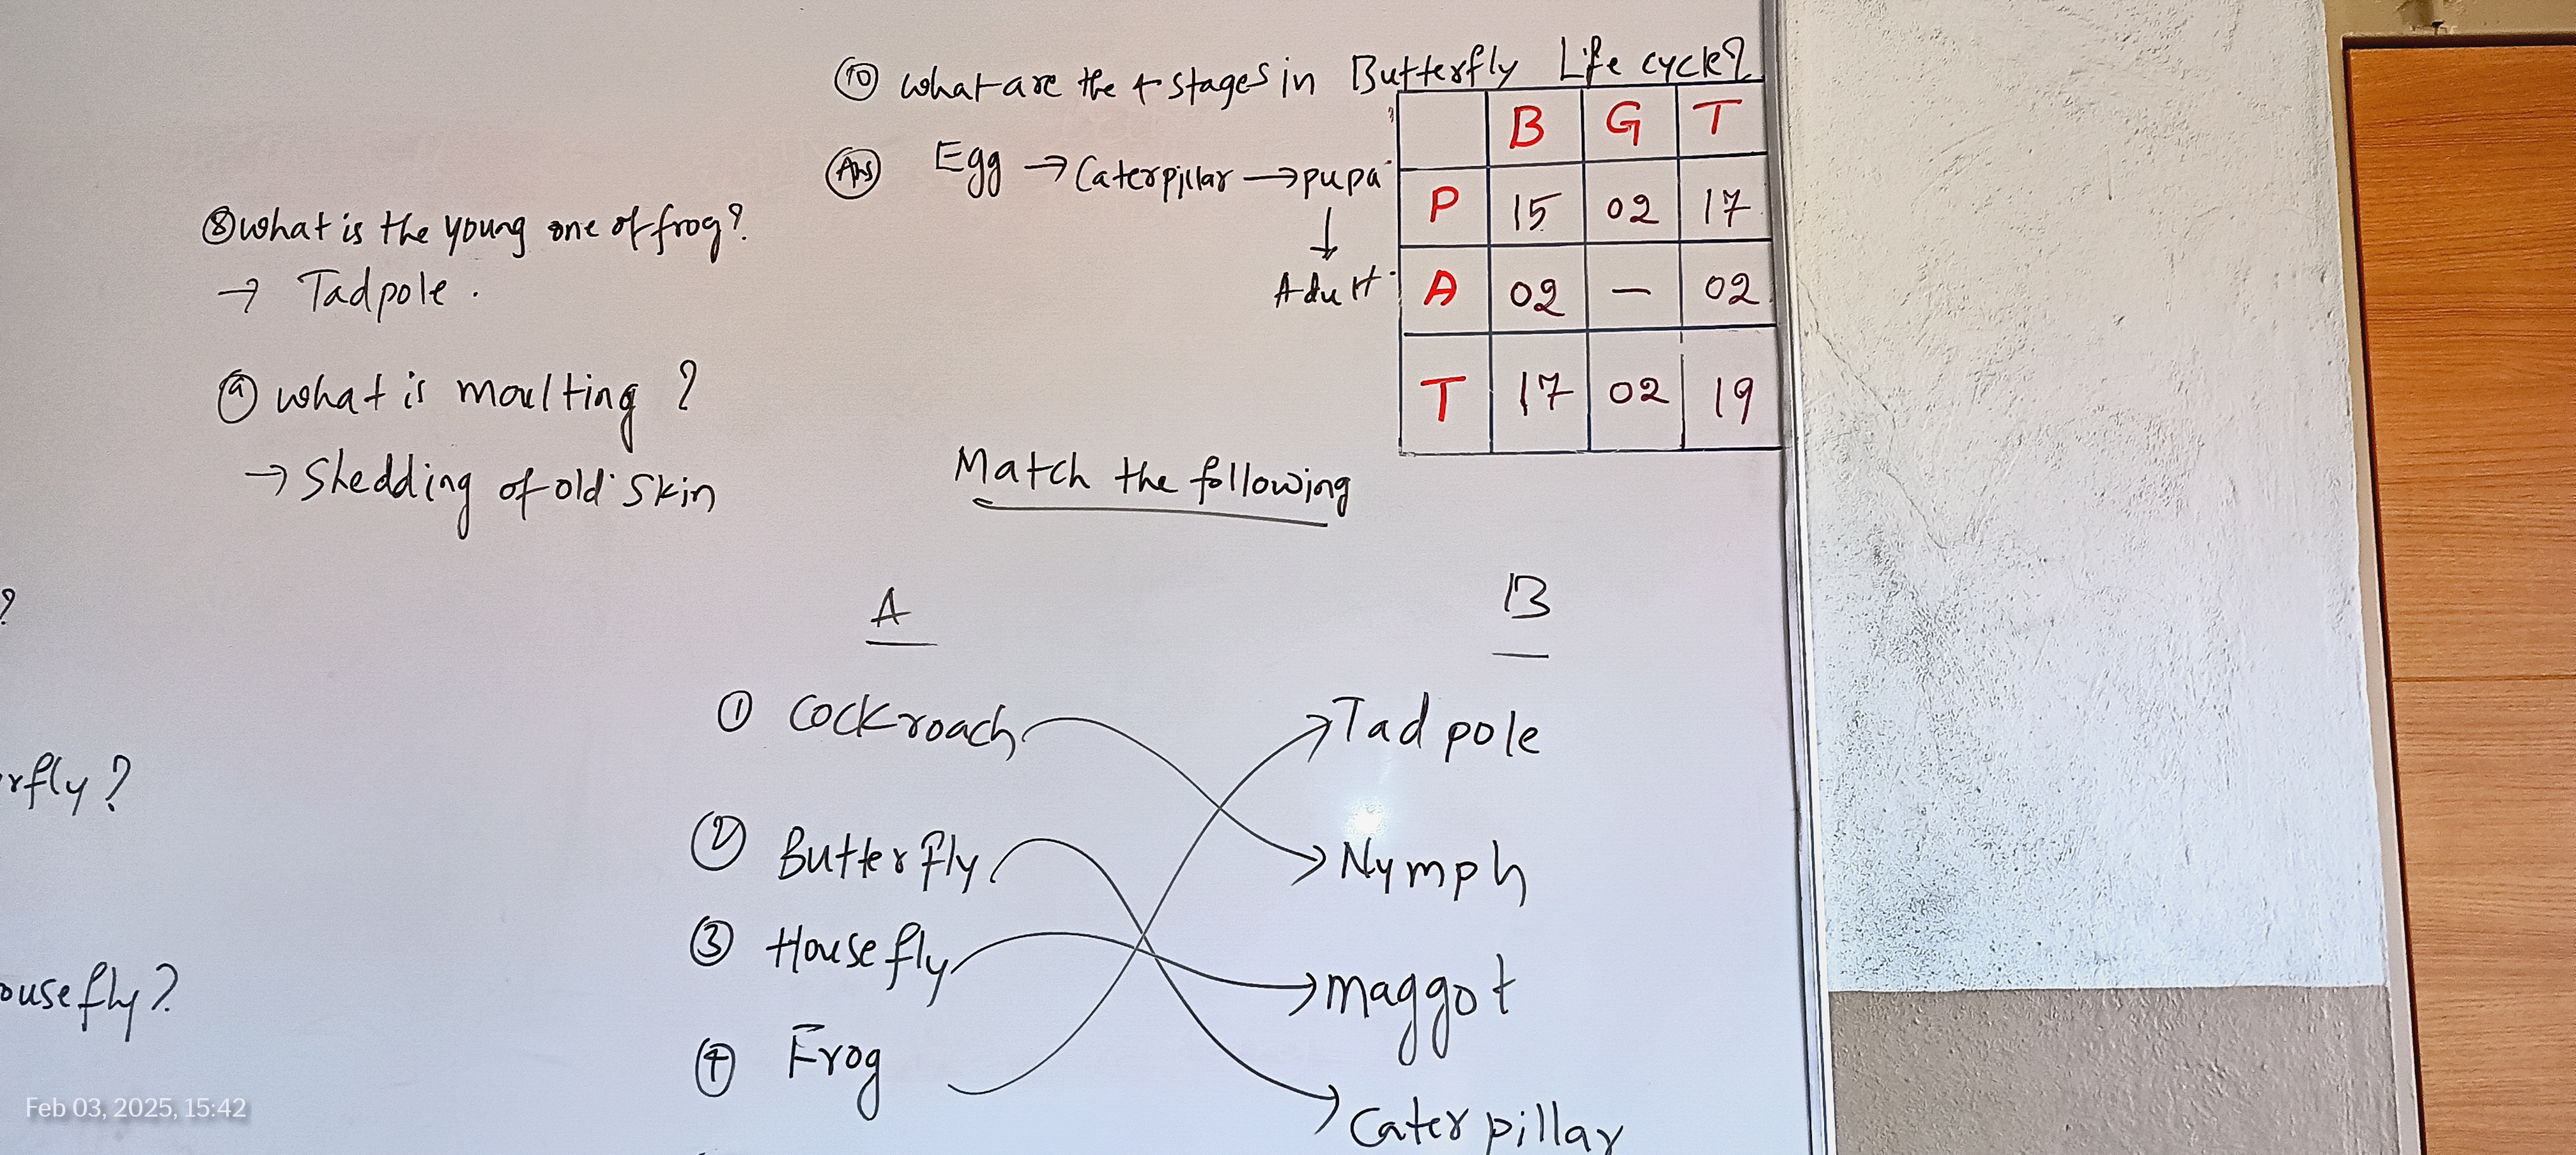 ⑧ what is the young one of frog?
→ Tadpole.
⑨ what is moulting ?
→ Shedding of old skin
?
rfly?
ousefly?
⑩ what are the 4 stages in Butterfly Life cycle?
Ans Egg → Caterpillar → pupa
↓
Adult
B G T
P 15 02 17
A 02 — 02
T 17 02 19
Match the following
A B
① Cockroach Tadpole
② Butterfly Nymph
③ Housefly maggot
④ Frog Caterpillar
Feb 03, 2025, 15:42